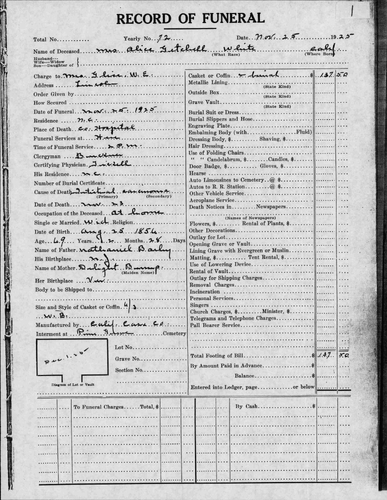 1
RECORD OF FUNERAL
Total No. Yearly No. 72 Date Nov. 25 1925
Name of Deceased Mrs Alice Getchell White Cal
(What Race) (Where Born)
Husband—
Wife—Widow
Son—Daughter of
Charge to Mrs. W. E.
Order Given by
How Secured
Date of Funeral Nov. 25 1925
Residence N.C.
Place of Death Co. Hospital
Funeral Services at Home
Time of Funeral Service 2 P.M.
Clergyman
Certifying Physician
His Residence N.C.
Number of Burial Certificate
Cause of Death carcinoma
(Primary) (Secondary)
Date of Death Nov. 23
Occupation of the Deceased At home
Single or Married Wid Religion
Date of Birth Aug. 25 1856
Age 69 Years 2 Months 28 Days
Name of Father Nathaniel Baily
His Birthplace N.J.
Name of Mother Delight Bump
(Maiden Name)
Her Birthplace
Body to be Shipped to
Size and Style of Casket or Coffin 6/3
W.B.
Manufactured by Calif. Cas. Co
Interment at Pine Grove Cemetery
Lot No.
Grave No.
Section No.
Diagram of Lot or Vault
Casket or Coffin & burial 137 50
Metallic Lining
(State Kind)
Outside Box
(State Kind)
Grave Vault
(State Kind)
Burial Suit or Dress
Burial Slippers and Hose
Engraving Plate
Embalming Body (with Fluid)
Dressing Body, $ Shaving, $
Hair Dressing
Use of Folding Chairs
" " Candelabrum, $ Candles, $
Door Badge, $ Gloves, $
Hearse
Auto Limousines to Cemetery @ $
Autos to R. R. Station @ $
Other Vehicle Service
Aeroplane Service
Death Notices in Newspapers
(Names of Newspapers)
Flowers, $ Rental of Plants, $
Other Decorations
Outlay for Lot
Opening Grave or Vault
Lining Grave with Evergreen or Muslin
Matting, $ Tent Rental, $
Use of Lowering Device
Rental of Vault
Outlay for Shipping Charges
Removal Charges
Incineration
Personal Services
Singers
Church Charges, $ Minister, $
Telegrams and Telephone Charges
Pall Bearer Service
Total Footing of Bill 137 50
By Amount Paid in Advance
Balance $
Entered into Ledger, page or below
To Funeral Charges Total, $ By Cash $